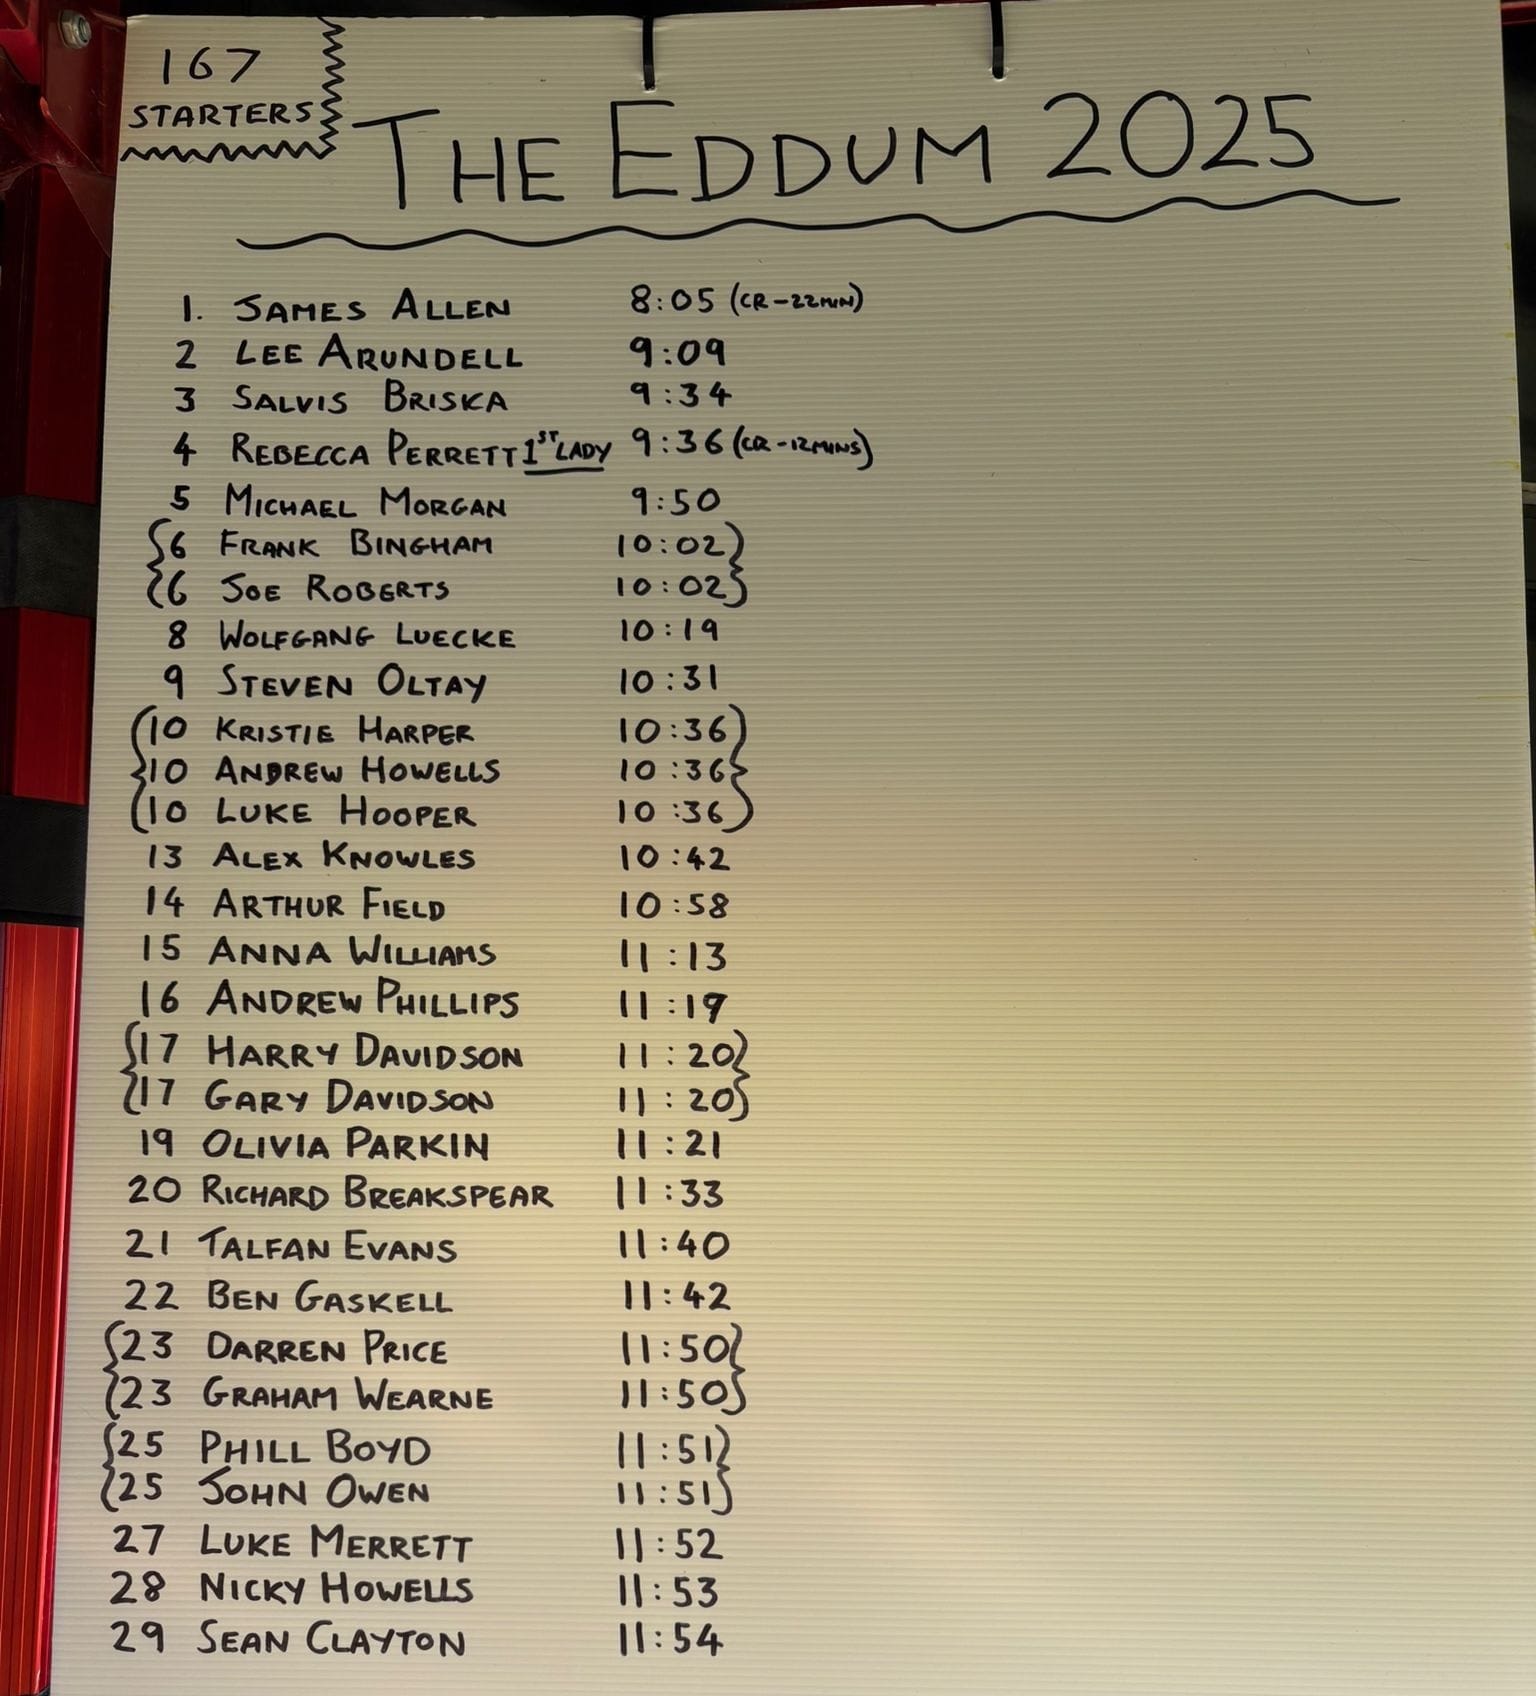 167
STARTERS
THE EDDUM 2025
1. JAMES ALLEN 8:05 (CR-22MIN)
2 LEE ARUNDELL 9:09
3 SALVIS BRISKA 9:34
4 REBECCA PERRETT 1ST LADY 9:36 (CR-12MINS)
5 MICHAEL MORGAN 9:50
6 FRANK BINGHAM 10:02
6 JOE ROBERTS 10:02
8 WOLFGANG LUECKE 10:19
9 STEVEN OLTAY 10:31
10 KRISTIE HARPER 10:36
10 ANDREW HOWELLS 10:36
10 LUKE HOOPER 10:36
13 ALEX KNOWLES 10:42
14 ARTHUR FIELD 10:58
15 ANNA WILLIAMS 11:13
16 ANDREW PHILLIPS 11:19
17 HARRY DAVIDSON 11:20
17 GARY DAVIDSON 11:20
19 OLIVIA PARKIN 11:21
20 RICHARD BREAKSPEAR 11:33
21 TALFAN EVANS 11:40
22 BEN GASKELL 11:42
23 DARREN PRICE 11:50
23 GRAHAM WEARNE 11:50
25 PHILL BOYD 11:51
25 JOHN OWEN 11:51
27 LUKE MERRETT 11:52
28 NICKY HOWELLS 11:53
29 SEAN CLAYTON 11:54